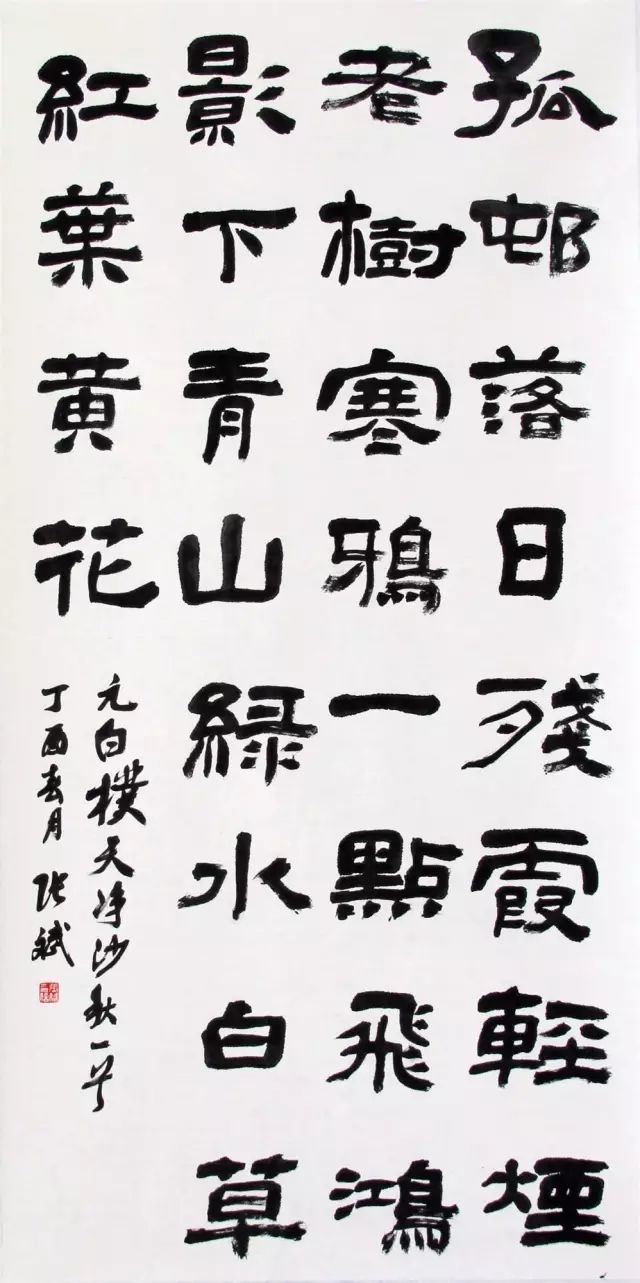 孤邨落日殘霞輕煙
老樹寒鴉一點飛鴻
影下青山綠水白草
紅葉黄花
元白樸天净沙秋一首
丁酉春月张斌